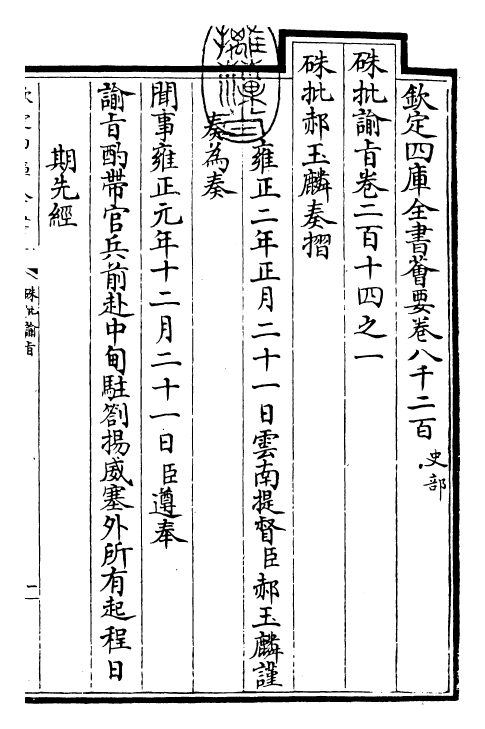 欽定四庫全書薈要卷八千二百 史部
硃批諭旨卷二百十四之一
硃批郝玉麟奏摺
雍正二年正月二十一日雲南提督臣郝玉麟謹
奏為奏
聞事雍正元年十二月二十一日臣遵奉
諭旨酌帶官兵前赴中甸駐劄揚威塞外所有起程日
期先經
硃批諭旨
一